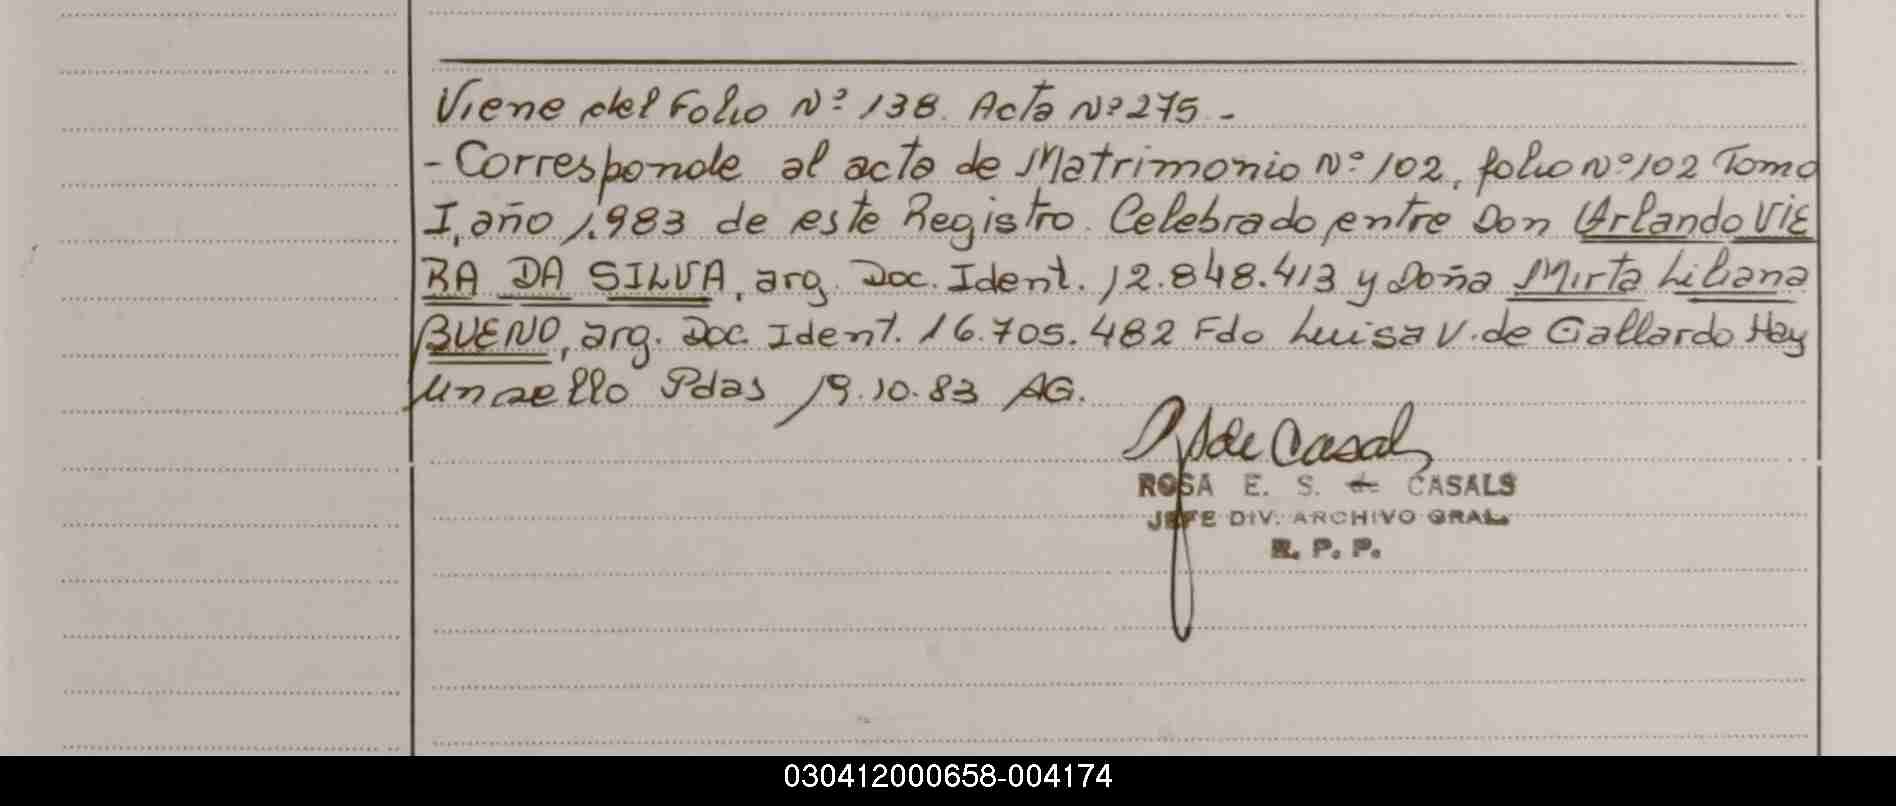 Viene del Folio Nº 138. Acta Nº 275.-
- Corresponde al acta de Matrimonio Nº 102, folio Nº 102 Tomo
I, año 1.983 de este Registro. Celebrado entre Don Orlando VIE
RA DA SILVA, arg. Doc. Ident. 12.848.413 y Doña Mirta Liliana
BUENO, arg. Doc. Ident. 16.705.482 Fdo Luisa V. de Gallardo Hay
un sello Pdas 19.10.83 AG.
de Casals
ROSA E. S. de CASALS
JEFE DIV. ARCHIVO GRAL.
R. P. P.
030412000658-004174